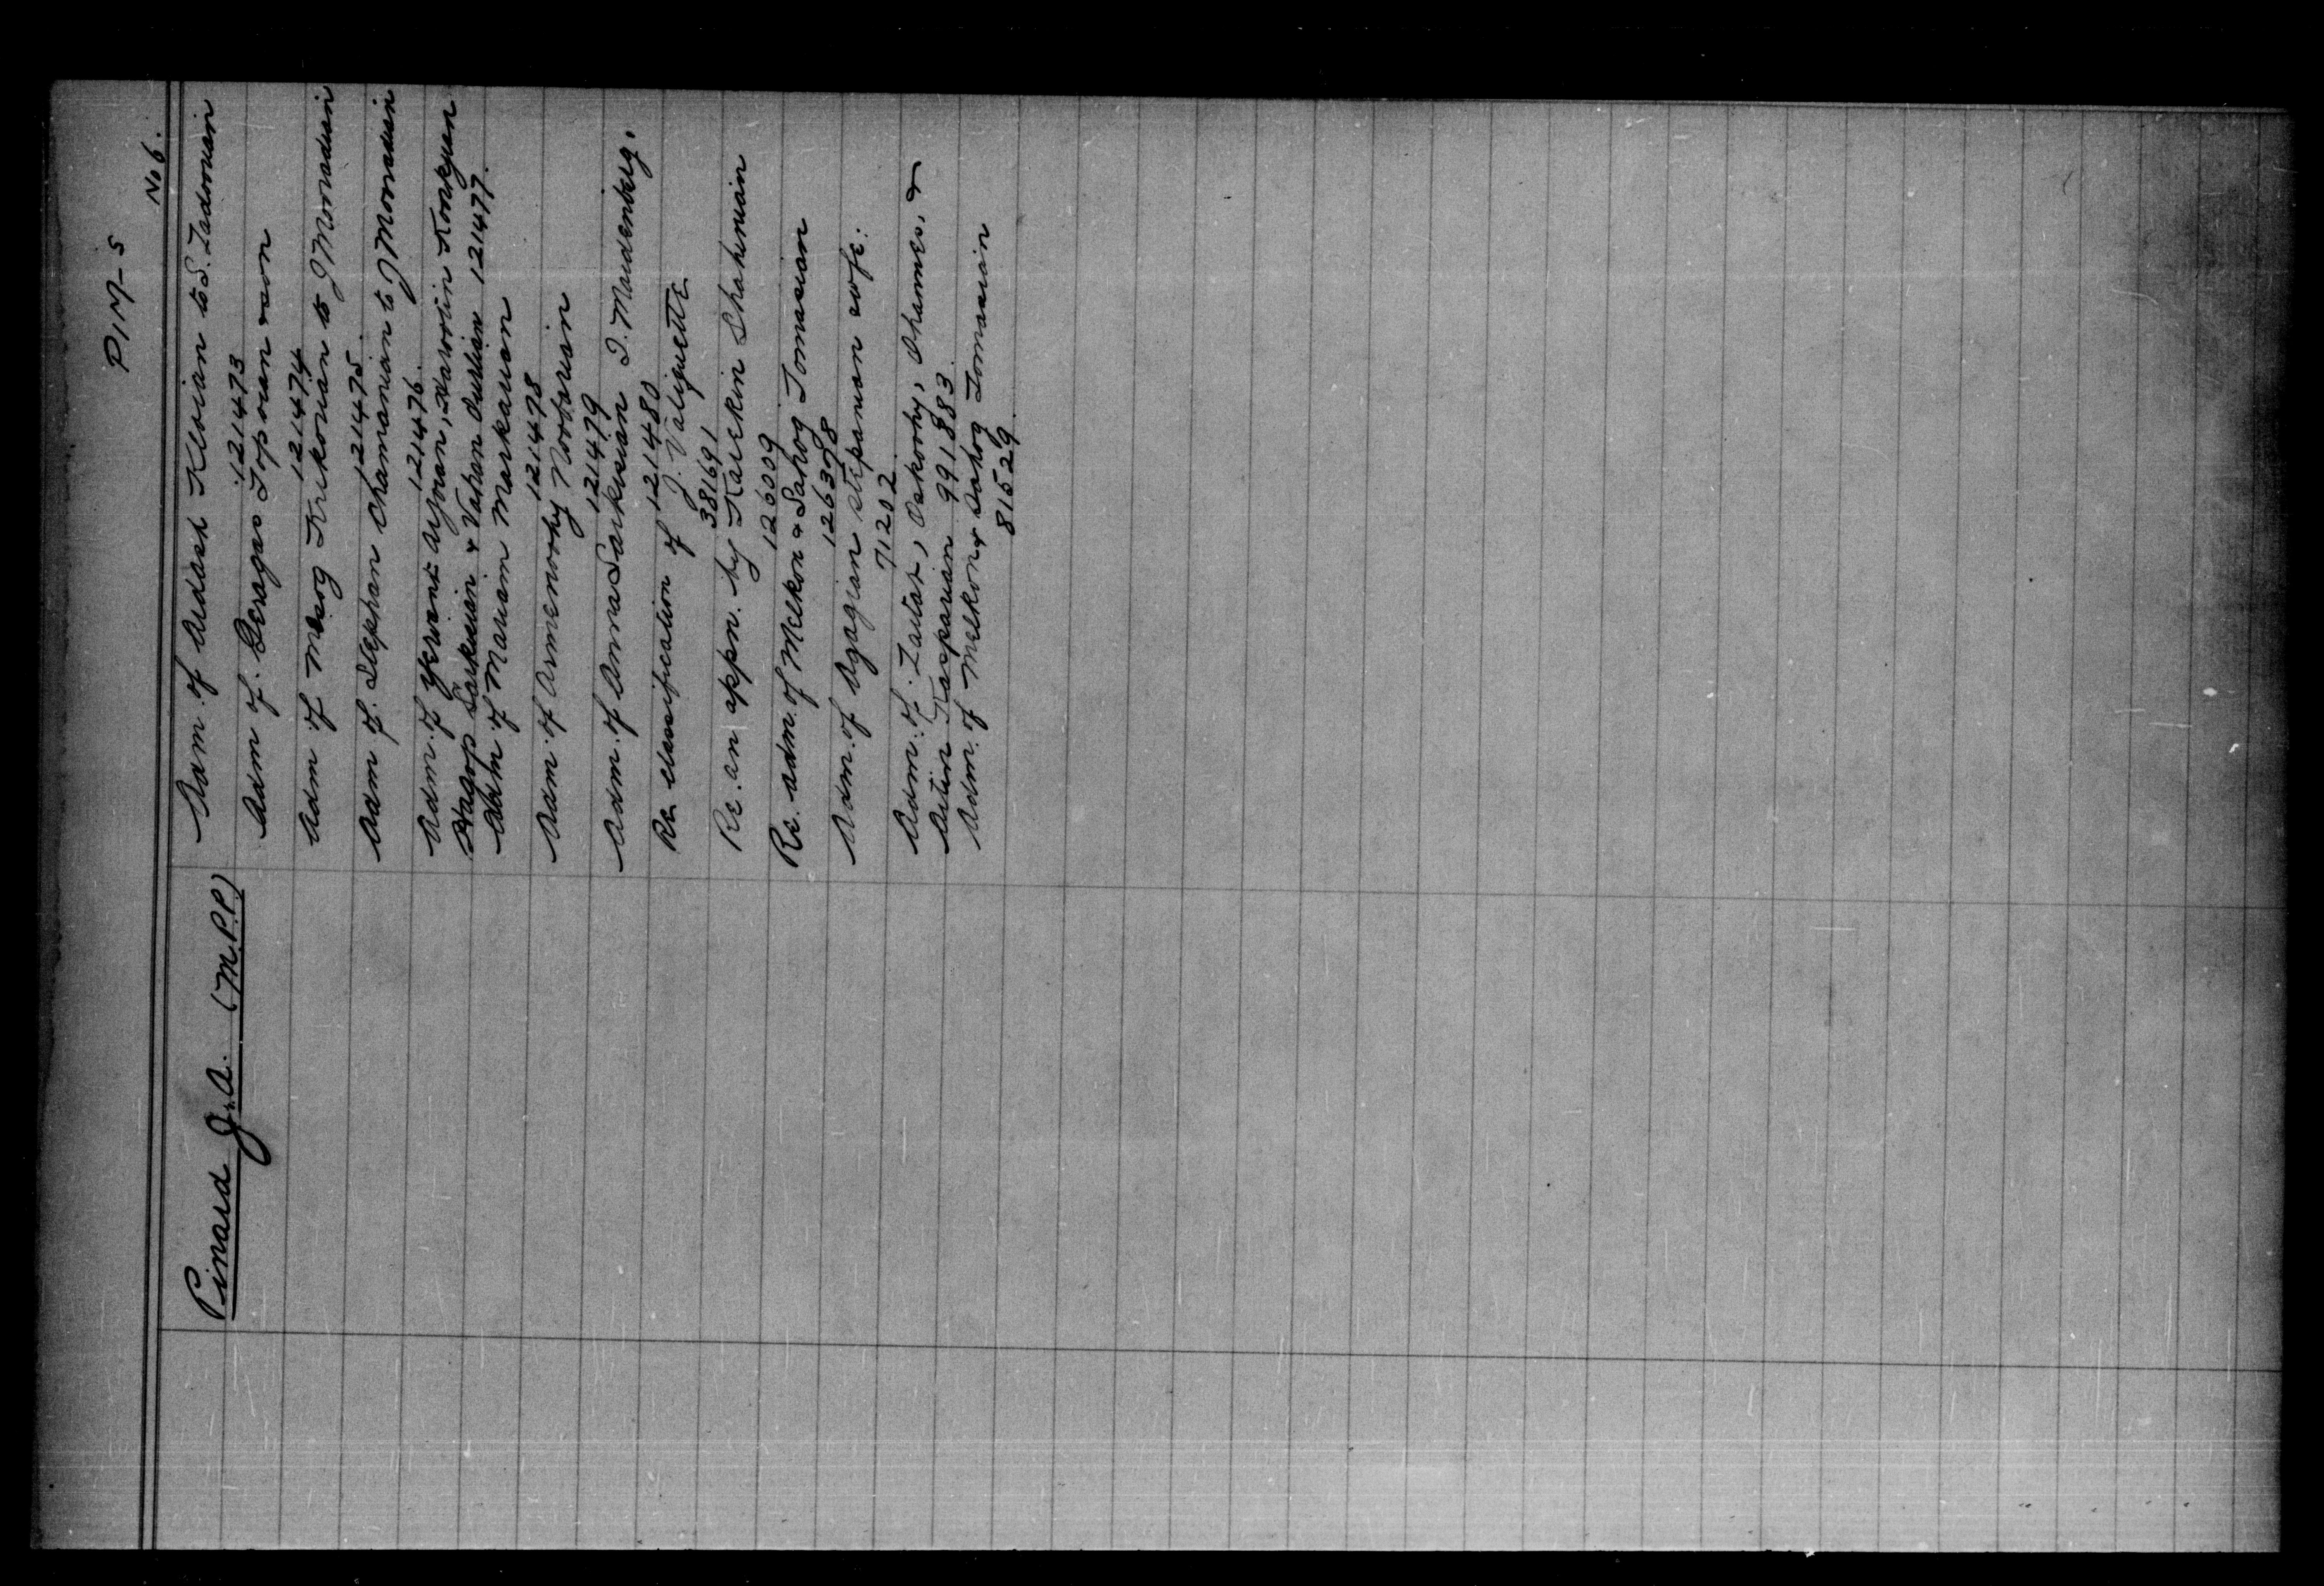 PIN-S
No 6.
Pinard J.A. (M.P.P.)
Adm. of Ardash Kloian to S. Zadoorian
121473
Adm of. Geragos Topoian & son
121474
Adm of Mesog Krekorian to J Mooradian
121475.
Adm of. Stephan Ohamanian to J Mooradian
121476.
Adm. of Yervent Arjoian, Haroutin Konkyian
Hagop Sarkisian & Vahan Ourlian 121477.
Adm of Mariam Markarian
121478
Adm. of Armenoohy Noobarian
121479
Adm. of Anna Sarkisian I. Maidenberg.
121480
Re classification of J. Valiquette
38169 1
Re. an appn. by Karekin Shahinian
126009
Re. adm. of Melkon & Sahog Tomasian
126398
Adm. of Agagian Stepanian wife:
71202
Adm. of. Zartar, Oskoohy, Ohannes, &
Artin Kasparian 991883
Adm. of Melkon & Sahog Tomasian
815 29